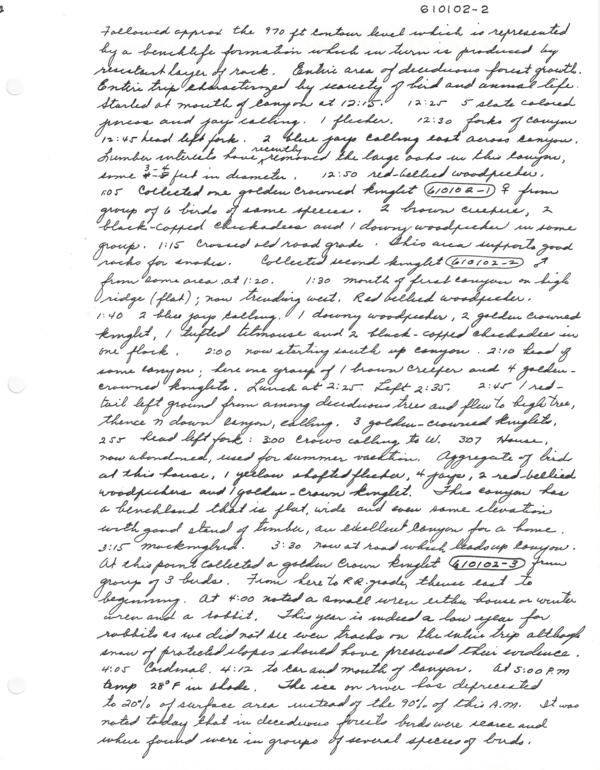 610102-2
Followed approx the 970 ft contour level which is represented
by a benchlife formation which in turn is produced by
resistant layer of rock. Entire area of deciduous forest growth.
Entire trip characterized by scarcity of bird and animal life.
Started at mouth of canyon at 12:15. 12:25 5 slate colored
juncos and jays calling. 1 flicker. 12:30 forks of canyon
12:45 head left fork. 2 blue jays calling east across canyon.
Lumber interests have recently removed the large oaks in this canyon,
some 3-4 feet in diameter. 12:50 red-bellied woodpecker.
1:05 Collected one golden crowned kinglet (610102-1) ♀ from
group of 6 birds of same species. 2 brown creepers, 2
black-capped chickadees and 1 downy woodpecker in same
group. 1:15 Crossed old road grade. This area supports good
rocks for snakes. Collected second kinglet (610102-2) ♂
from same area at 1:20. 1:30 mouth of first canyon on high
ridge (flat); now trending west. Red bellied woodpecker.
1:40 2 blue jays calling. 1 downy woodpecker, 2 golden crowned
kinglet, 1 tufted titmouse and 2 black-capped chickadees in
one flock. 2:00 now starting south up canyon. 2:10 head of
same canyon; here one group of 1 brown creeper and 4 golden-
crowned kinglets. Lunch at 2:25. Left 2:35. 2:45 1 red-
tail left ground from among deciduous trees and flew to high tree,
thence N down canyon, calling. 3 golden-crowned kinglets.
255 head left fork: 300 Crows calling to W. 307 House,
now abandoned, used for summer vacation. Aggregate of bird
at this house, 1 yellow shafted flicker, 4 jays, 2 red-bellied
woodpeckers and 1 golden-crown kinglet. This canyon has
a benchland that is flat, wide and even same elevation
with good stand of timber, an excellent canyon for a home.
3:15 mockingbird. 3:30 now at road which leads up canyon.
At this point collected a golden crown kinglet (610102-3) from
group of 3 birds. From here to R.R. grade, thence east to
beginning. At 4:00 noted a small wren either house or winter
wren and a rabbit. This year is indeed a low year for
rabbits as we did not see even tracks on the entire trip although
snow of protected slopes should have preserved their evidence.
4:05 Cardinal. 4:12 to car and mouth of canyon. At 5:00 P.M
temp 28°F in shade. The ice on river has depreciated
to 20% of surface area instead of the 90% of this A.M. It was
noted today that in deciduous forests birds were scarce and
where found were in groups of several species of birds.